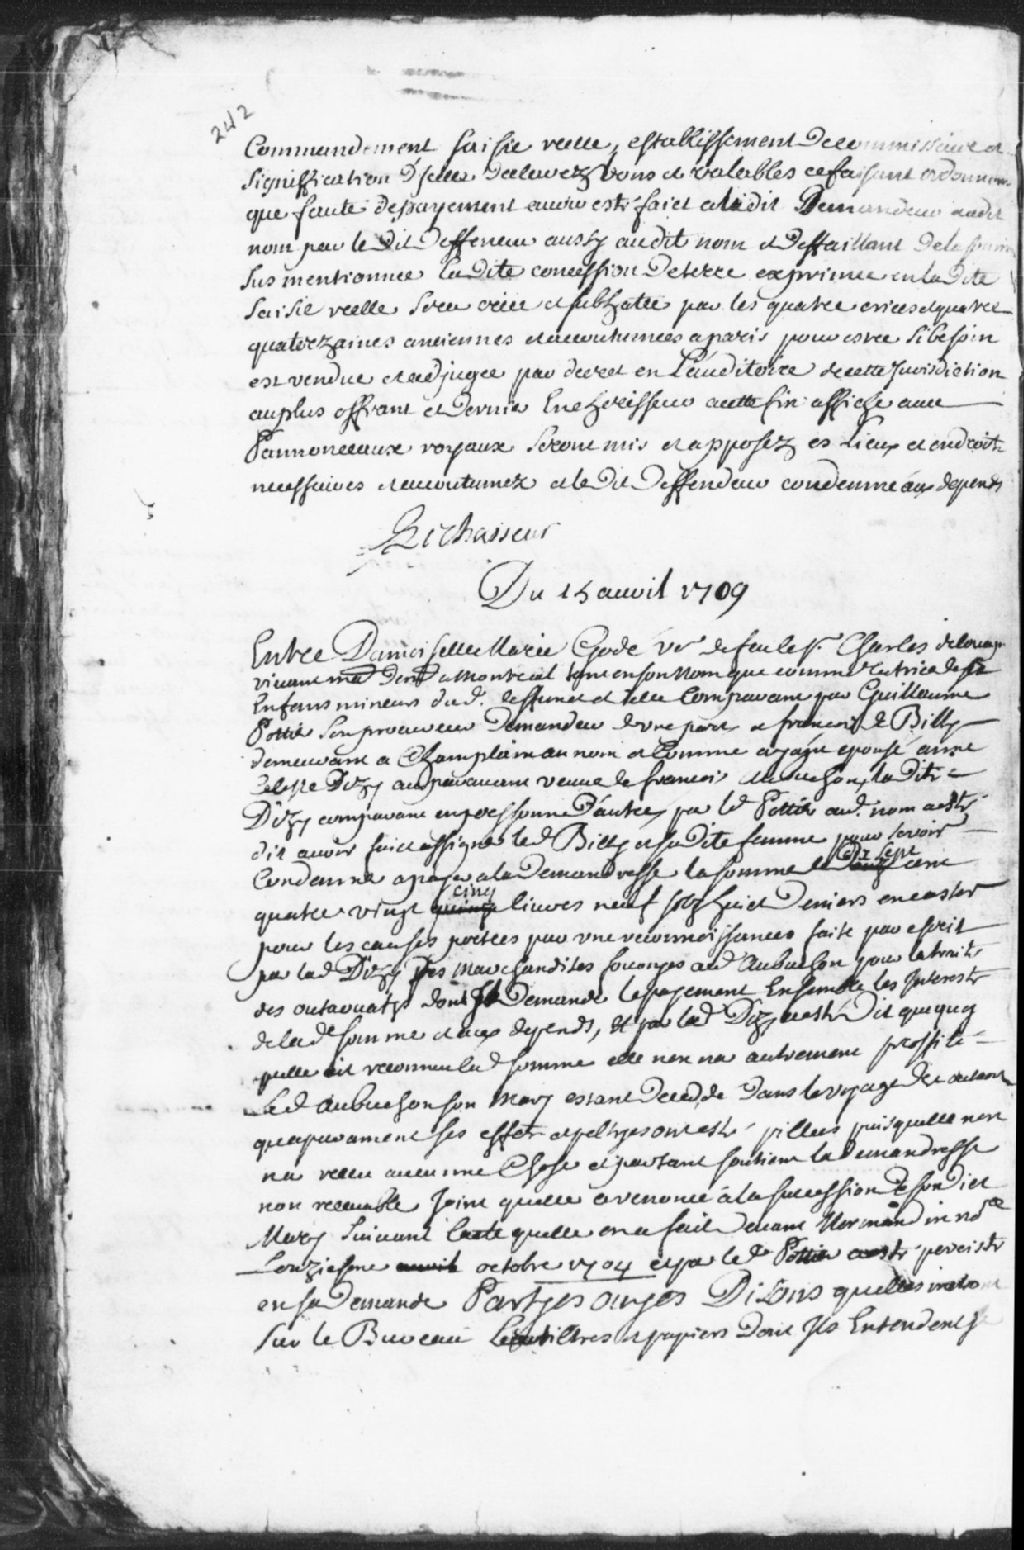 242
Commandement saisie reelle, establissement de commissaire et
signiffication d'jselles declarez bons et valables ce faisant ordonnons
que faute de payement avoir esté faict a ladit Demandeur audit
nom par le dit deffeneur aussy audit nom et deffaillant de la somme
sus mentionnee la dite concession de terre exprimee en la dite
saisie reelle sera criée et subhastee par les quatre criees et quatre
quatorzaines anciennes et accoutumées a paris pour estre si besoin
est vendue et adjugée par decret en l'auditoire de cette jurisdiction
au plus offrant et dernier Encherisseur a cette fin affiche avec
Pannonceaux royaux seront mis et apposez es Lieux et endroits
necessaires et accoutumez et le dit deffendeur condemné aux depends
Lechasseur
Du 15 avvil 1709
Entre Damoiselle Marie Godé vve de feu le Sr. Charles
vivant md a Montreal tant en son Nom que comme tutrice de
Enfans mineurs dud. deffunct et elle Comparant par Guillaume
Pottié son procureur demandeur d'vne part et francois de Billy
demeurant a Champlain au nom et Comme ayant epousé anne
Celeste Dizy auparavant veuve de francois aubuchon, la dite
Dizy comparant en personne d'autre, par led Pottié aud. nom a esté
dit avoir faict assigner led Billy et sa dite femme pour se voir
Condemner a payer a la demandresse la somme de dix sept cent
quatre vingt cinq livres neuf sols huict deniers en castor
pour les causes portées par vne reconnoissance faite par escrit
par lad Dizy des marchandises fournyes aud Aubuchon pour la traite
des outaouats dont Il demande le payement Ensemble les Interests
de lad somme et aux depends, Et par lad Dizy a esté dit que quoy
quelle ait reconneu lad somme elle n'en n'a autrement proffité
Led Aubuchon son Mary estant decedé dans le voyage des
qu'apparament ses effets et peltryes ont esté pillées puisquelle n'en
n'a receu aucunne Chose et partant soutient la demandresse
non recevable Joint quelle a renoncé á la succession de son dict
Mary suivant l'acte quelle en a fait devant Normandin nore
Lonziesme octobre 1704 et par led Pottié a esté persisté
en sa demande Partyes ouyes Disons quelles mettront
sur le Bureau Les tiltres et papiers dont Ils Entendent se